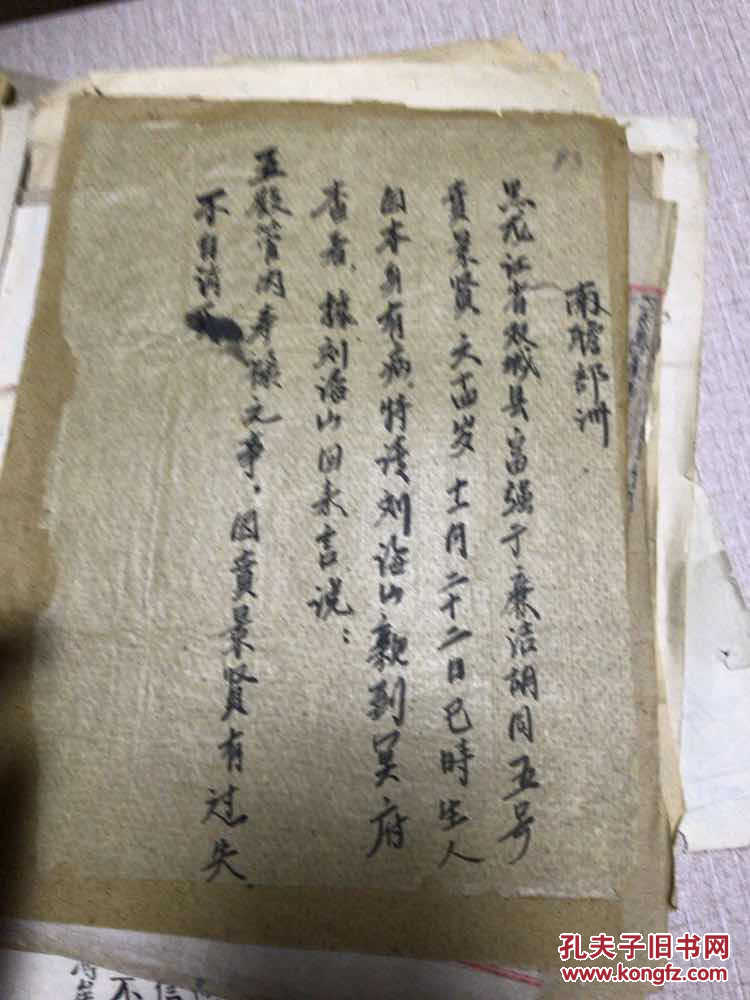 南瞻部洲
黑龙江省双城县富强于廉洁胡同五号
贲景贤 六十四岁 十二月二十二日巳時生人
因本身有病，特请刘海山親到冥府
查看，据刘海山回来言说：
五殿管内奉 之事，因贲景贤有过失
不自消
孔夫子旧书网
www.kongfz.com